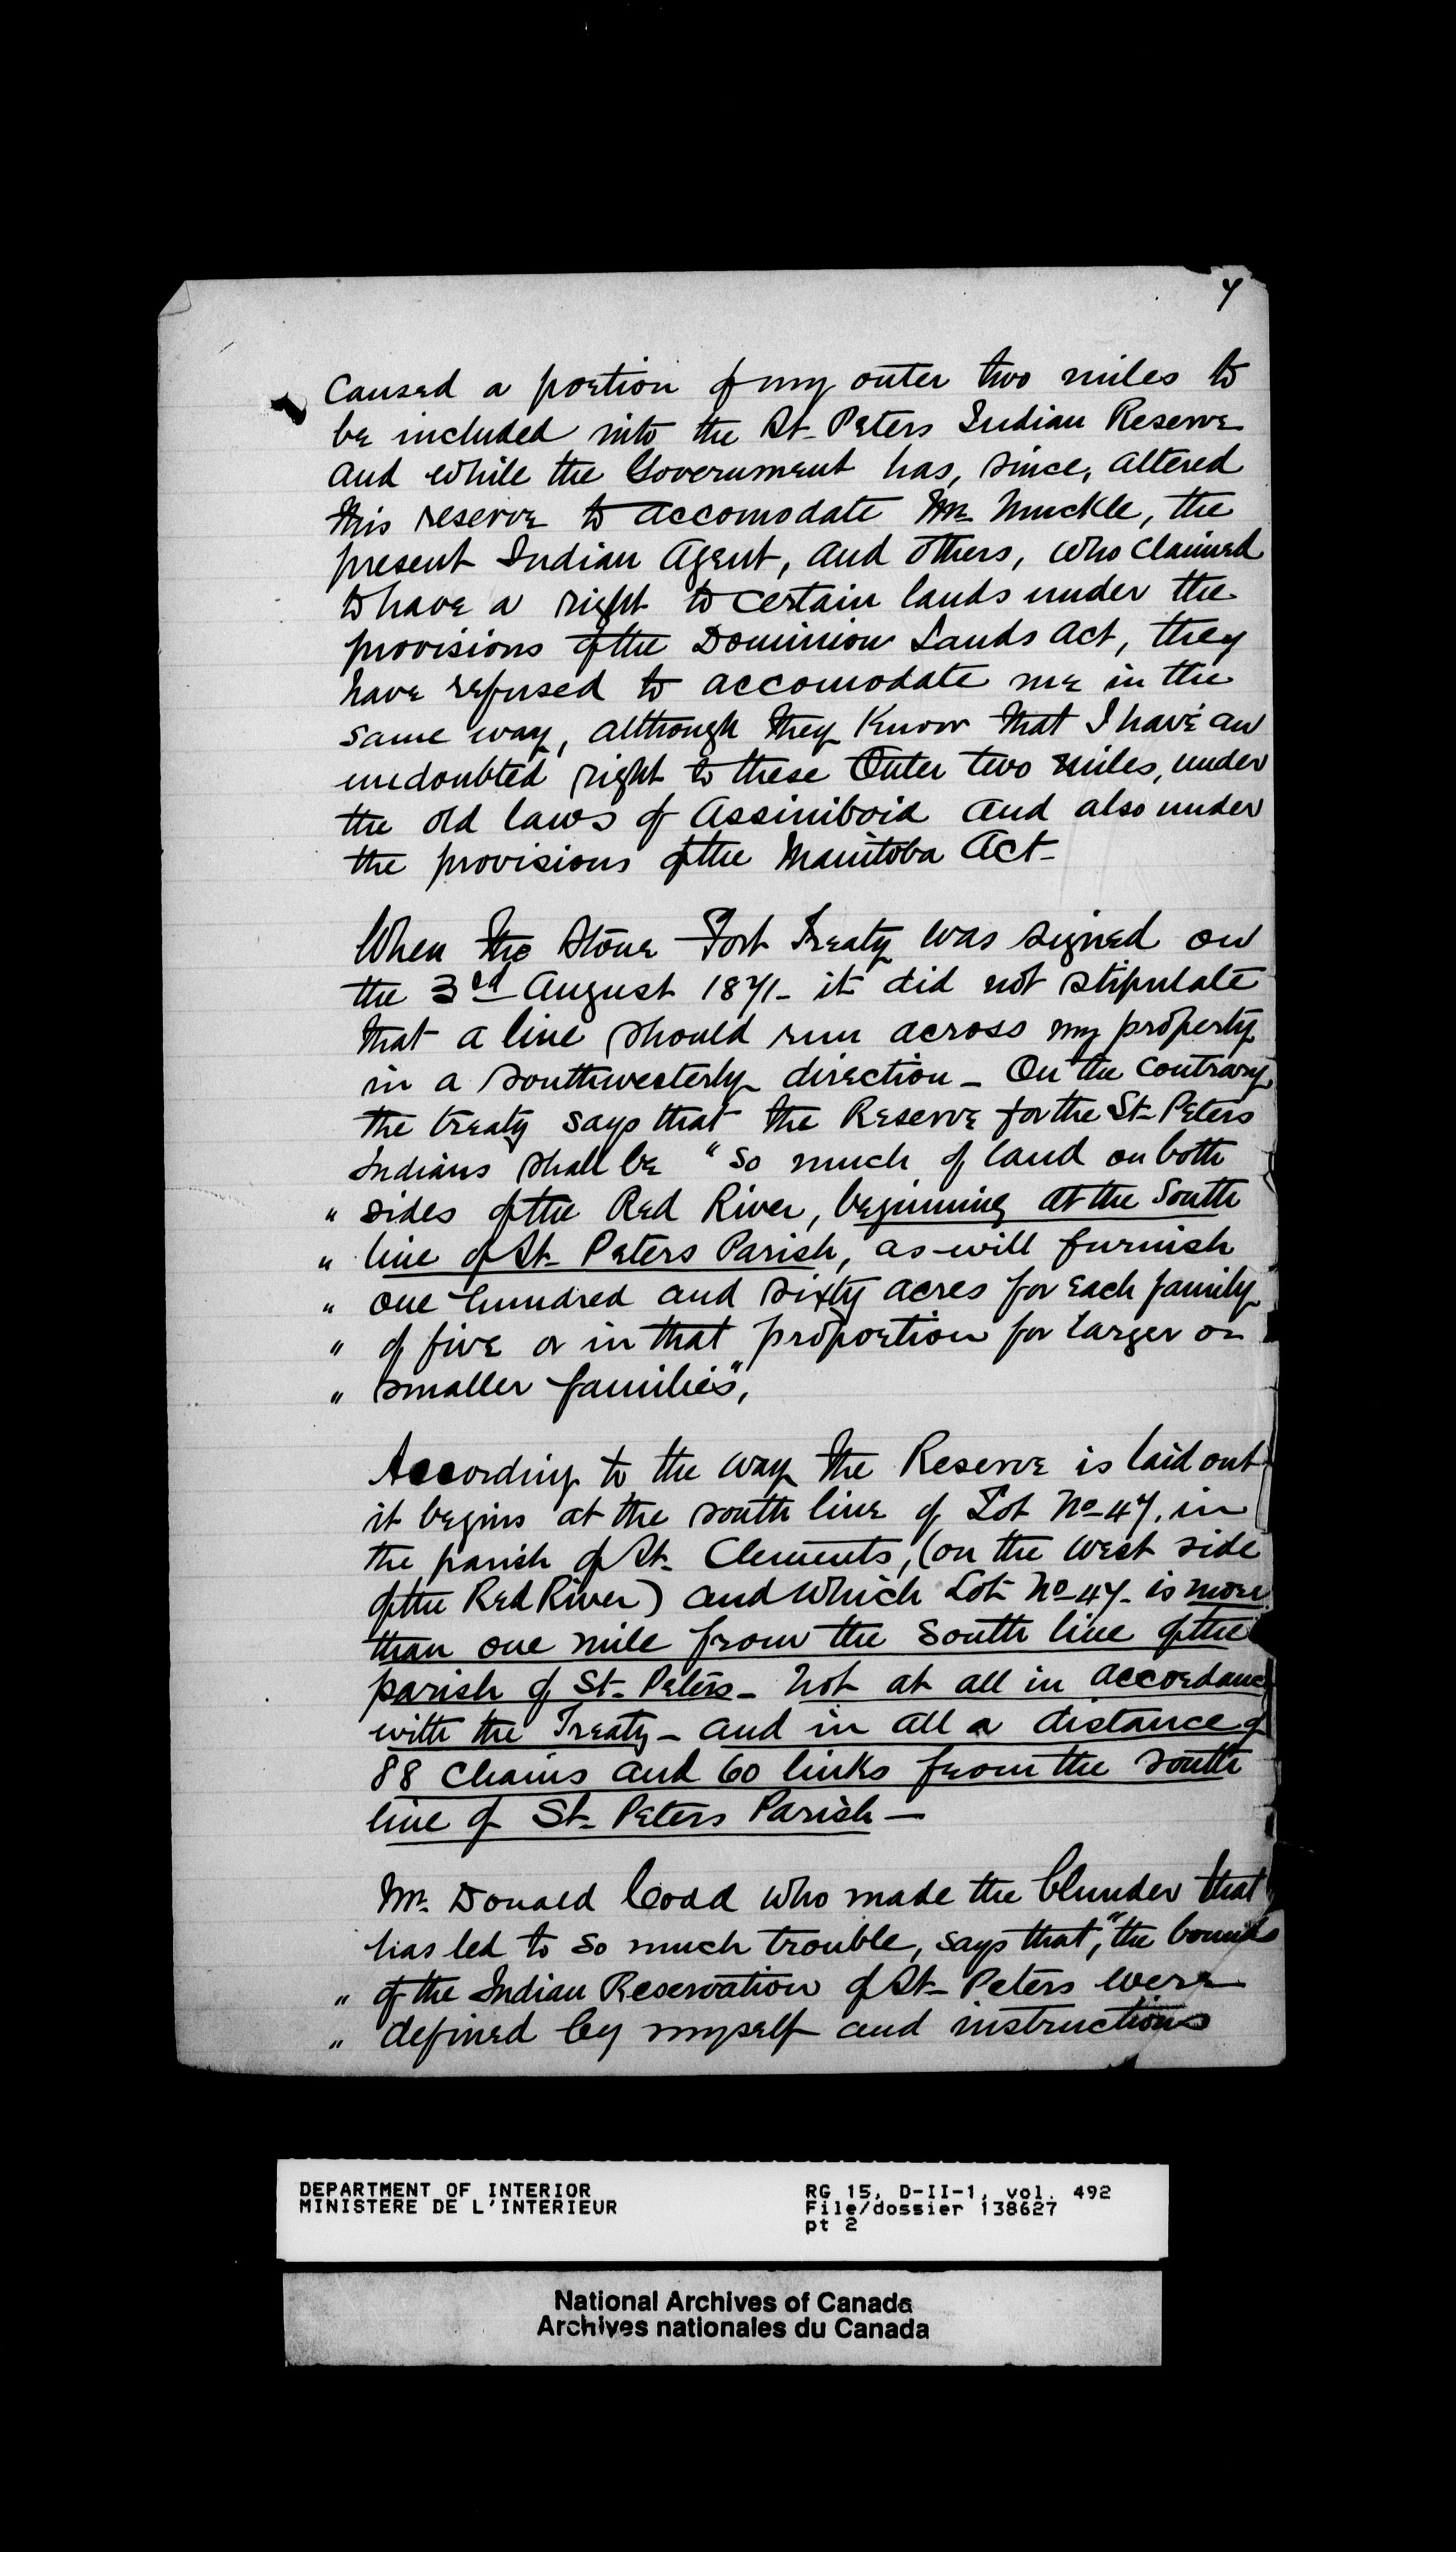 7
Caused a portion of my outer two miles to
be included into the St. Peters Indian Reserve
and while the Government has, since, altered
this reserve to accomodate Mr. Muckle, the
present Indian Agent, and others, who claimed
to have a right to certain lands under the
provisions of the Dominion Lands Act, they
have refused to accomodate me in the
same way, although they know that I have an
undoubted right to these Outer two miles, under
the old laws of Assiniboia and also under
the provisions of the Manitoba Act-
When the Stone Fort Treaty was signed on
the 3rd August 1871- it did not stipulate
that a line should run across my property
in a southwesterly direction - On the contrary
the treaty says that the Reserve for the St. Peters
Indians shall be "So much of land on both
" sides of the Red River, beginning at the South
" line of St. Peters Parish, as will furnish
" one hundred and sixty acres for each family
" of five or in that proportion for larger or
" smaller families",
According to the way the Reserve is laid out
it begins at the south line of Lot No 47, in
the parish of St. Clements, (on the west side
of the Red River) and which Lot No 47 - is more
than one mile from the South line of the
parish of St. Peters - Not at all in accordance
with the Treaty - and in all a distance of
88 Chains and 60 links from the south
line of St. Peters Parish -
Mr. Donald Codd who made the blunder that
has led to so much trouble, says that, "the bounds
" of the Indian Reservation of St. Peters were
" defined by myself and instructions
DEPARTMENT OF INTERIOR
MINISTERE DE L'INTERIEUR
RG 15, D-II-1, vol. 492
File/dossier 138627
pt 2
National Archives of Canada
Archives nationales du Canada